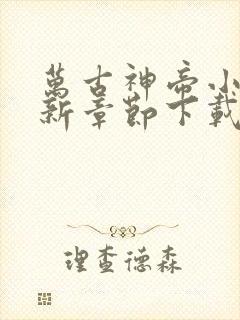 萬古神帝小
新章節下載
理查德森